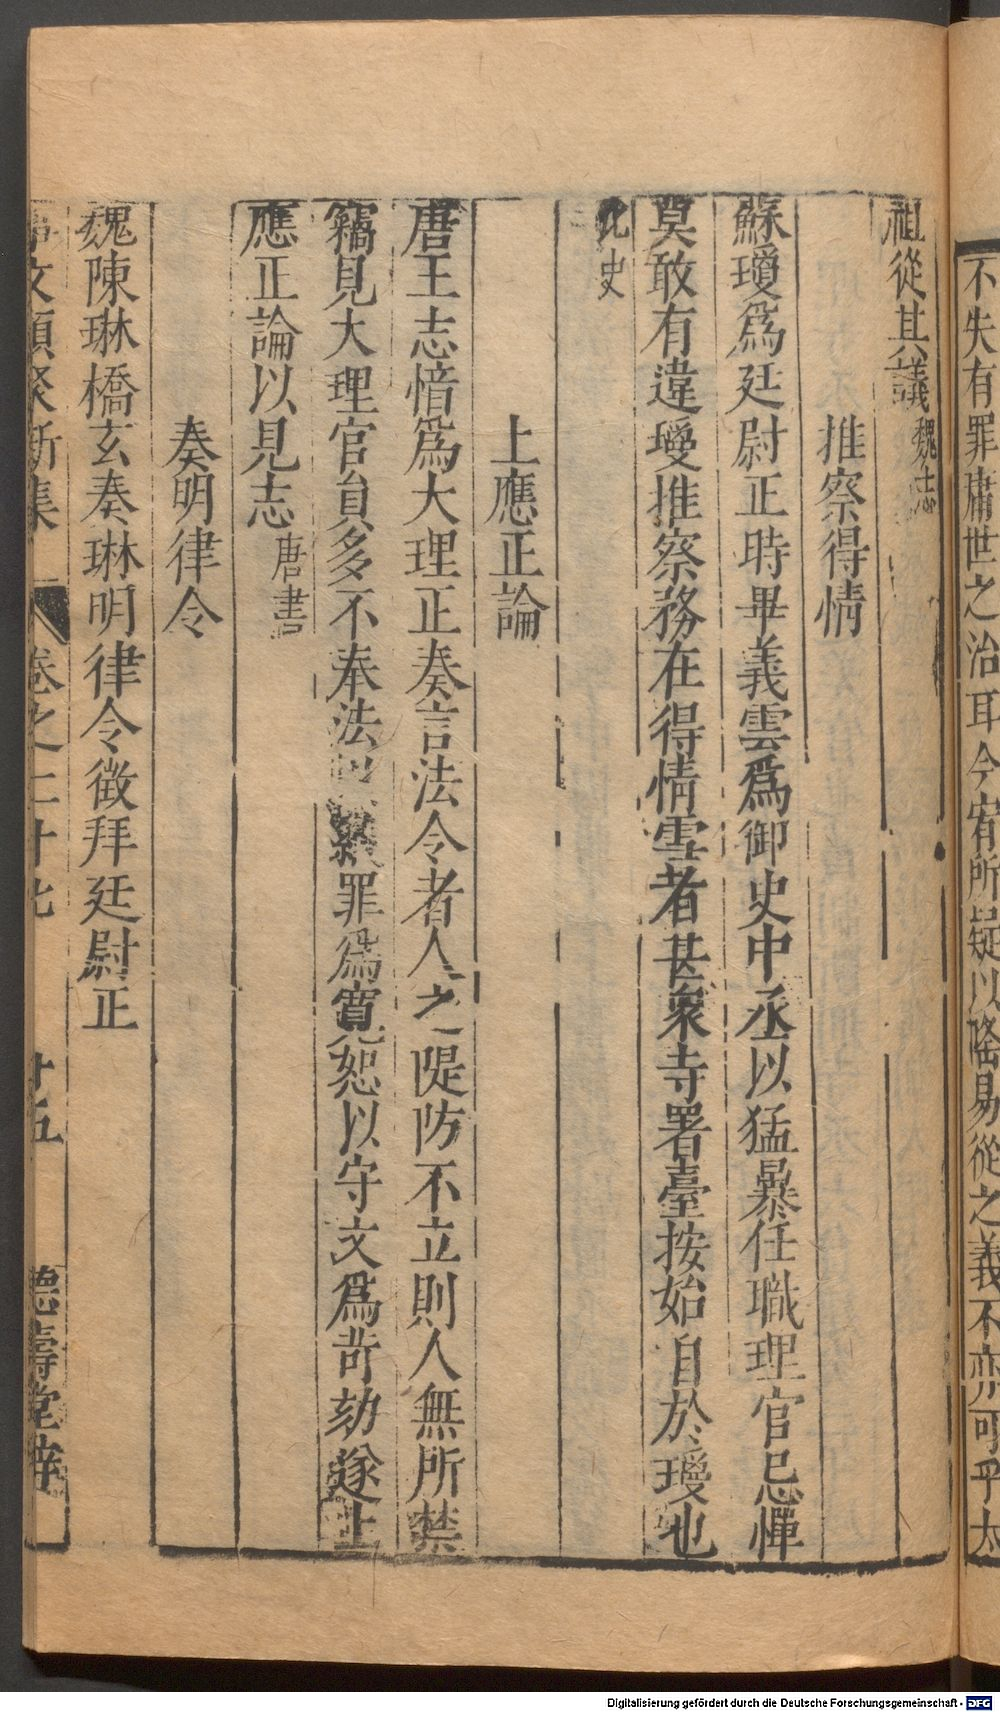 不失有罪庸世之治耳今宥所疑以隆易從之義不亦可乎太
祖從其議魏志
推察得情
蘇瓊爲廷尉正時畢義雲爲御史中丞以猛暴任職理官忌憚
莫敢有違瓊推察務在得情雪者甚衆寺署臺按始自於瓊也
北史
上應正論
唐王志愔爲大理正奏言法令者人之隄防不立則人無所禁
竊見大理官員多不奉法以縱罪爲寛恕以守文爲苛劾遂上
應正論以見志唐書
奏明律令
魏陳琳橋玄奏琳明律令徵拜廷尉正
事文類聚新集 卷之二十九 十五 德壽堂梓
Digitalisierung gefördert durch die Deutsche Forschungsgemeinschaft - DFG